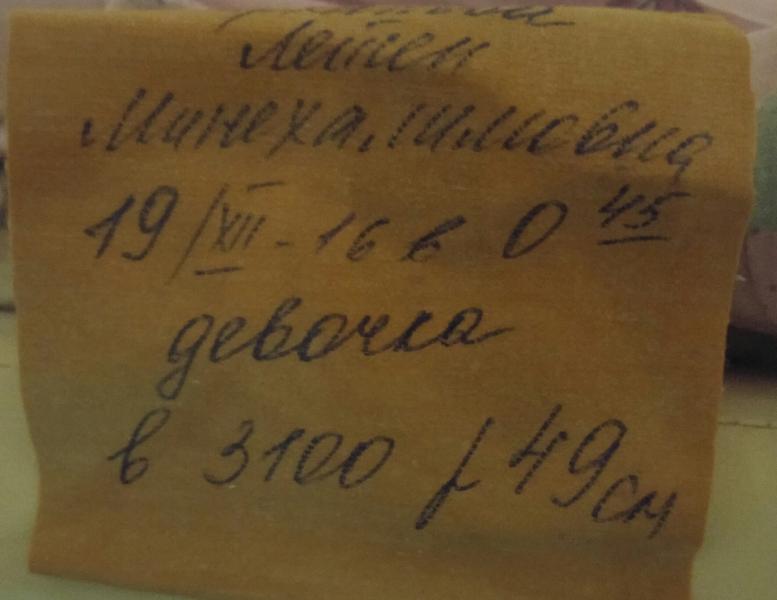 Минехалимовна
19/XII-16 в 0 45
девочка
в 3100 р 49 см